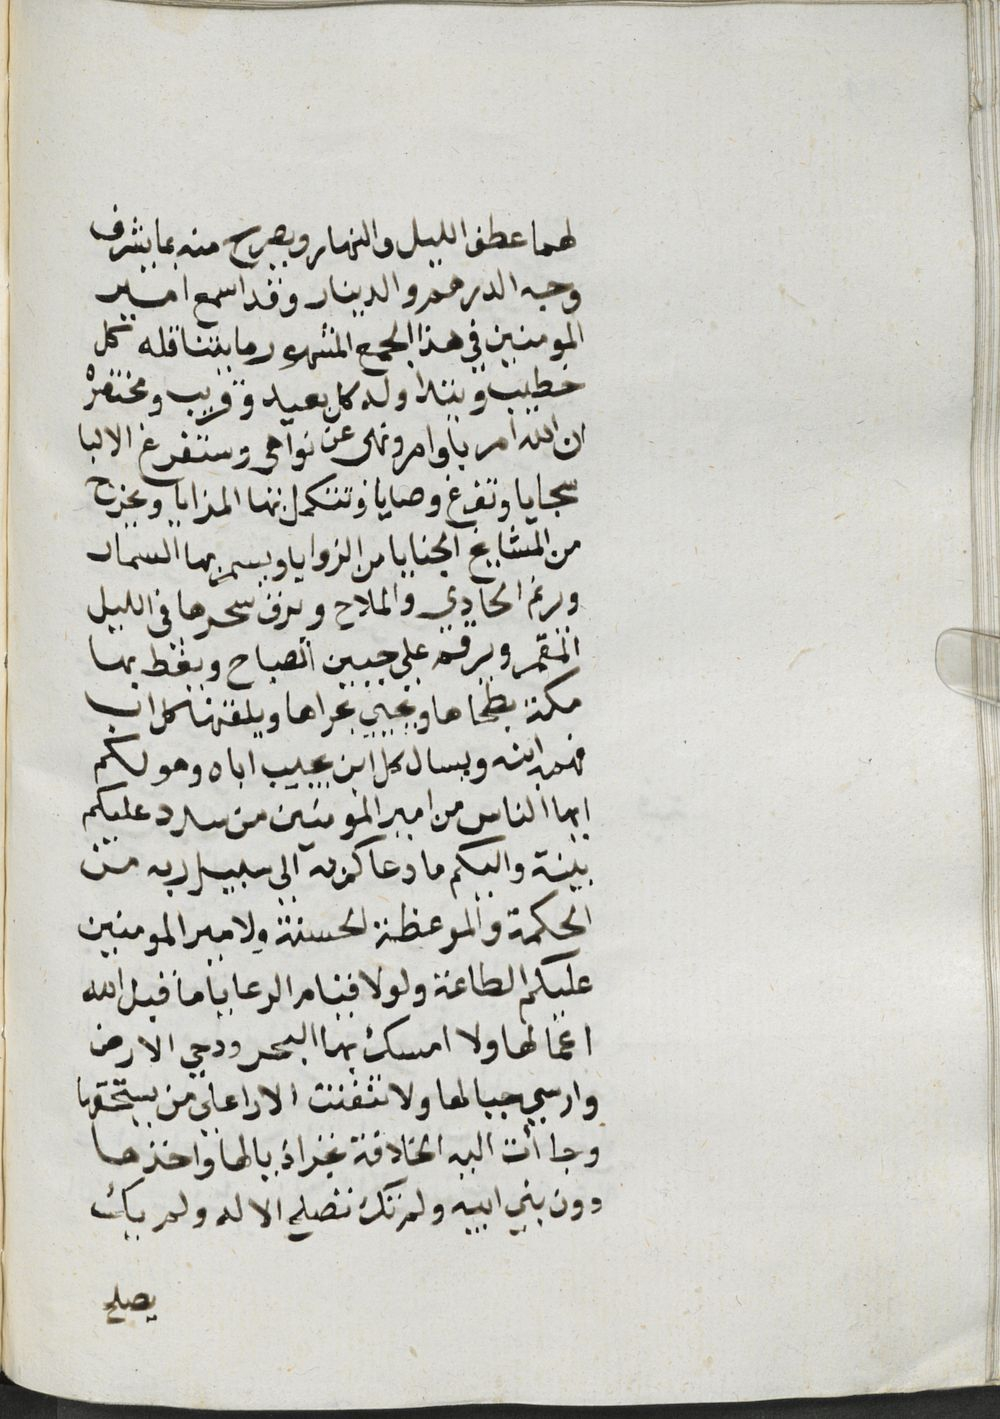 لهما عطف الليل والنهار ويصرح منه بما يشرف
وجه الدرهم والدينار وقد اسمع امير
المومنين في هذا الجمع المشهور ما يتناقله كل
خطيب ويتداوله كل بعيد وقريب ومختصره
ان الله امر باوامر ونهى عن نواهي وستفرغ الالبا
سجايا وتفرغ وصايا وتتكمل بها المزايا ويخرج
من المشايخ الخبايا من الزوايا ويسمر بها السمار
ويرنم الحادي والملاح ويرق سحرها في الليل
المقمر ويرقم علي جبين الصباح ويغط بها
مكة بطحاها ويحيي بحراها ويلقنها كل اب
فهم ابنه ويسال كل ابن نجيب اباه وهو لكم
ايها الناس من امير المومنين من سدد عليكم
بينة واليكم ما دعاكم به الى سبيل ربه من
الحكمة والموعظة لحسنة ولامير المومنين
عليكم الطاعة ولولا قيام الرعايا ما قبل الله
اعمالها ولا امسك بها البحر ودحي الارض
وارسي جبالها ولا اتفقت الارا على من يستحقها
وجاأت اليه الخلافة تجر اذيالها واخذها
دون بني ابيه ولم تك تصلح الا له ولم يك
يصلح